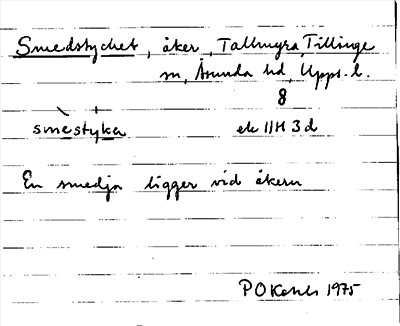 Smedstycket, åker, Tallmyra, Tillinge
sn, Åsunda hd, Upps. l.
8
smèstyka ek 11H 3d
En smedja ligger vid åkern
P O 1975